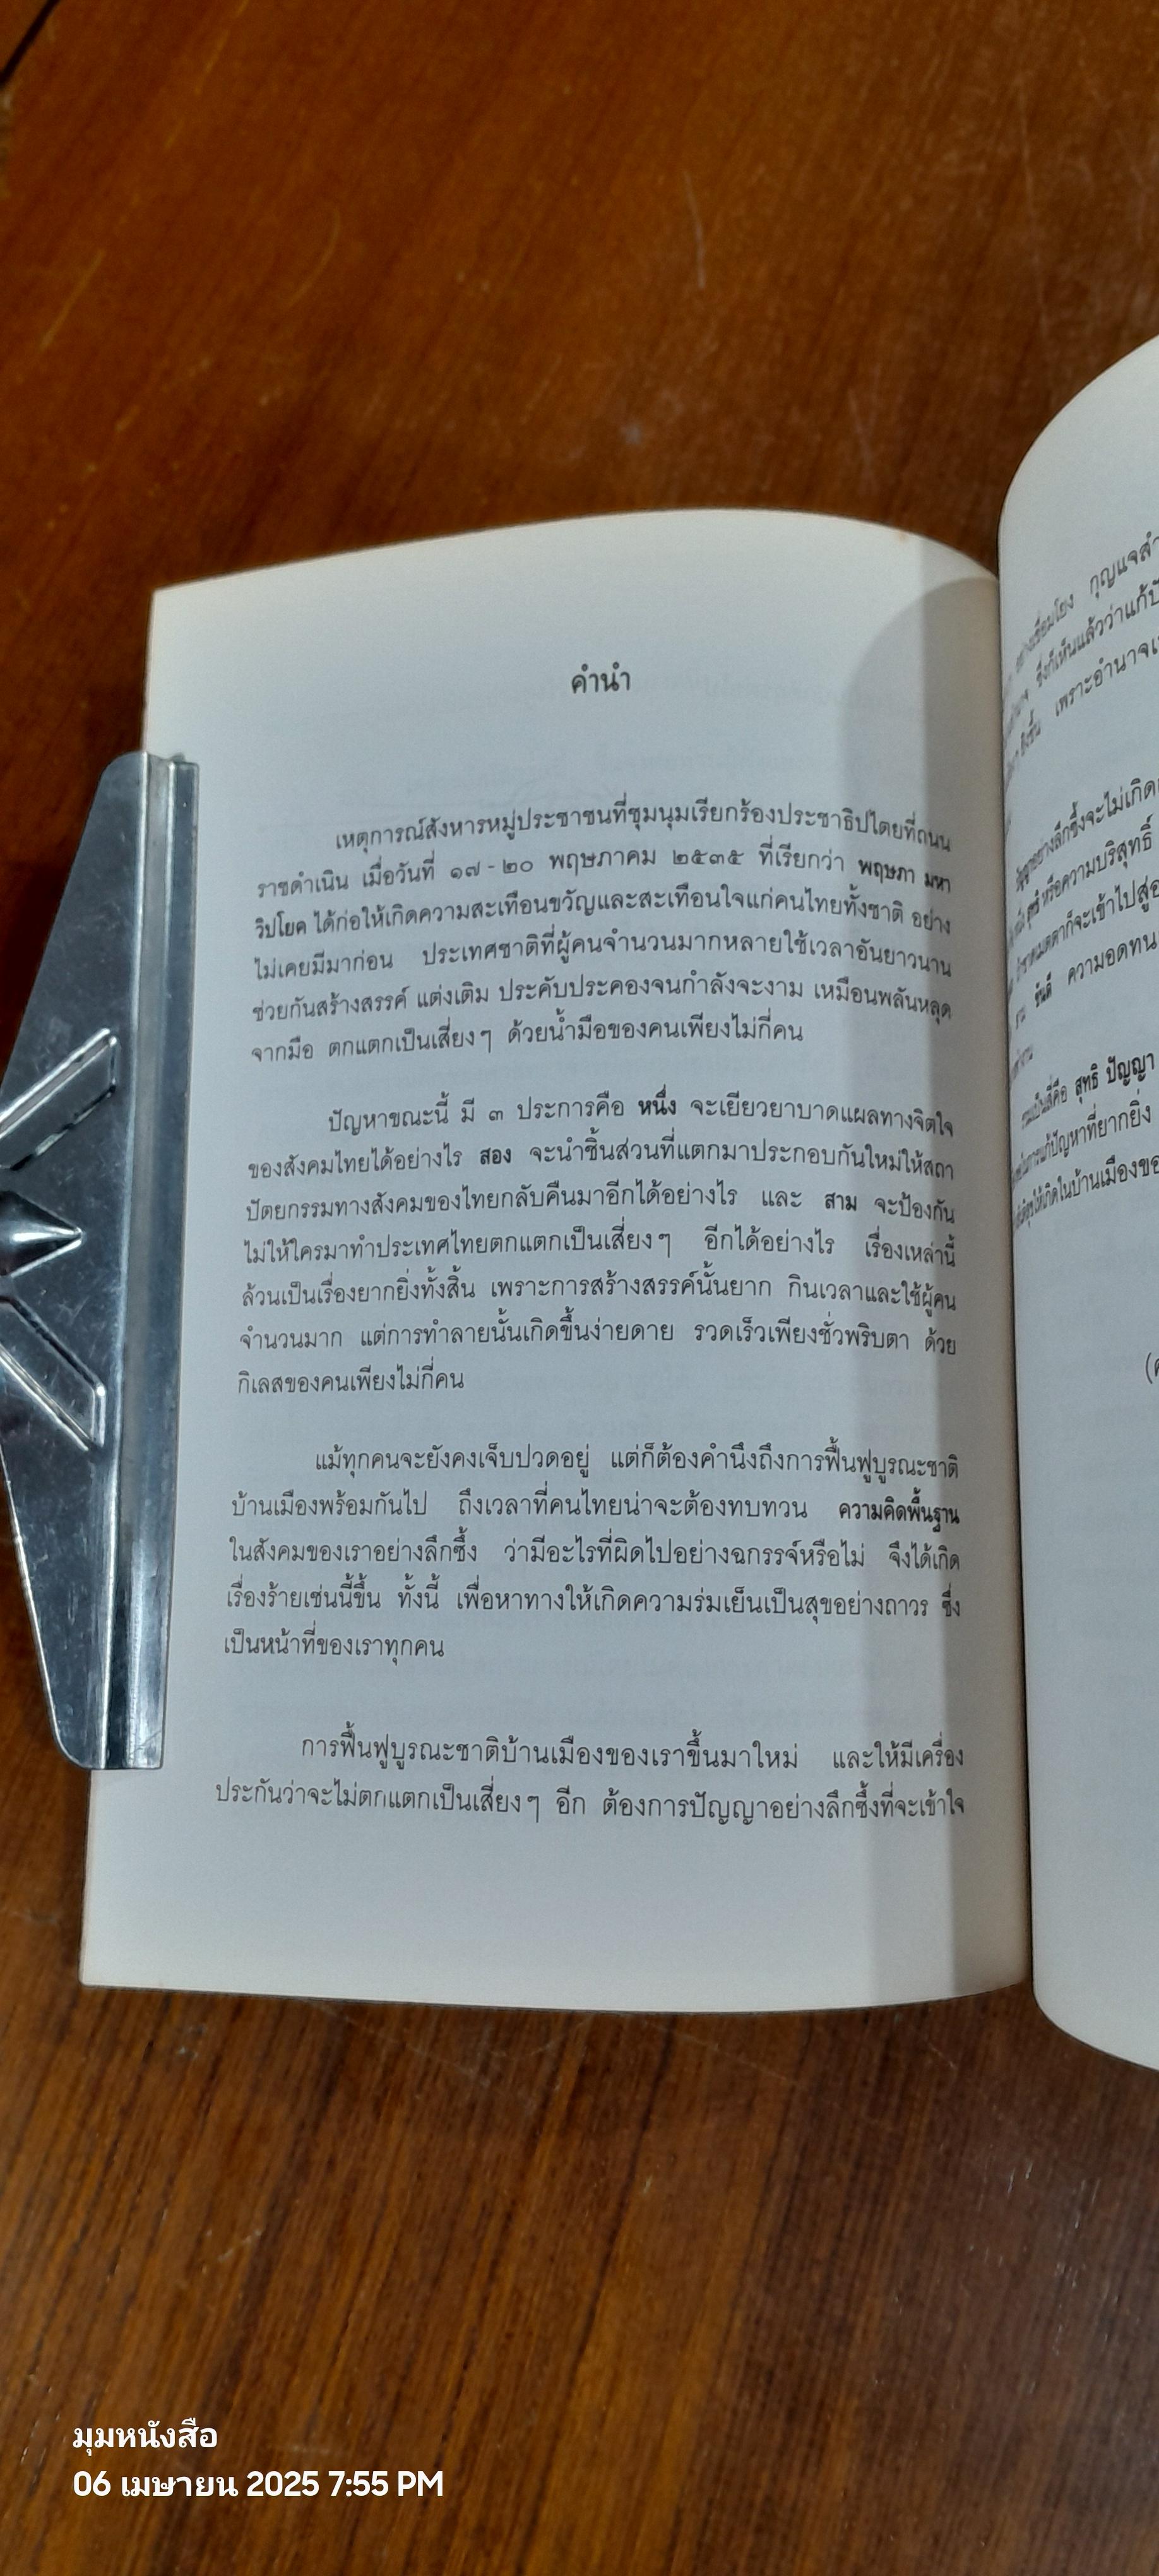 คำนำ
เหตุการณ์สังหารหมู่ประชาชนที่ชุมนุมเรียกร้องประชาธิปไตยที่ถนน
ราชดำเนิน เมื่อวันที่ ๑๗-๒๐ พฤษภาคม ๒๕๓๕ ที่เรียกว่า พฤษภา มหา
วิปโยค ได้ก่อให้เกิดความสะเทือนขวัญและสะเทือนใจแก่คนไทยทั้งชาติ อย่าง
ไม่เคยมีมาก่อน ประเทศชาติที่ผู้คนจำนวนมากหลายใช้เวลาอันยาวนาน
ช่วยกันสร้างสรรค์ แต่งเติม ประคับประคองจนกำลังจะงาม เหมือนพลันหลุด
จากมือ ตกแตกเป็นเสี่ยงๆ ด้วยน้ำมือของคนเพียงไม่กี่คน
ปัญหาขณะนี้ มี ๓ ประการคือ หนึ่ง จะเยียวยาบาดแผลทางจิตใจ
ของสังคมไทยได้อย่างไร สอง จะนำชิ้นส่วนที่แตกมาประกอบกันใหม่ให้สถา
ปัตยกรรมทางสังคมของไทยกลับคืนมาอีกได้อย่างไร และ สาม จะป้องกัน
ไม่ให้ใครมาทำประเทศไทยตกแตกเป็นเสี่ยงๆ อีกได้อย่างไร เรื่องเหล่านี้
ล้วนเป็นเรื่องยากยิ่งทั้งสิ้น เพราะการสร้างสรรค์นั้นยาก กินเวลาและใช้ผู้คน
จำนวนมาก แต่การทำลายนั้นเกิดขึ้นง่ายดาย รวดเร็วเพียงชั่วพริบตา ด้วย
กิเลสของคนเพียงไม่กี่คน
แม้ทุกคนจะยังคงเจ็บปวดอยู่ แต่ก็ต้องคำนึงถึงการฟื้นฟูบูรณะชาติ
บ้านเมืองพร้อมกันไป ถึงเวลาที่คนไทยน่าจะต้องทบทวน ความคิดพื้นฐาน
ในสังคมของเราอย่างลึกซึ้ง ว่ามีอะไรที่ผิดไปอย่างฉกรรจ์หรือไม่ จึงได้เกิด
เรื่องร้ายเช่นนี้ขึ้น ทั้งนี้ เพื่อหาทางให้เกิดความร่มเย็นเป็นสุขอย่างถาวร ซึ่ง
เป็นหน้าที่ของเราทุกคน
การฟื้นฟูบูรณะชาติบ้านเมืองของเราขึ้นมาใหม่ และให้มีเครื่อง
ประกันว่าจะไม่ตกแตกเป็นเสี่ยงๆ อีก ต้องการปัญญาอย่างลึกซึ้งที่จะเข้าใจ
อย่างเชื่อมโยง กุญแจสำ
ซึ่งก็เห็นแล้วว่าแก้ปั
ยิ่งขึ้น เพราะอำนาจ
อย่างลึกซึ้งจะไม่เกิด
สุทธิ์ หรือความบริสุทธิ์
ก็จะเข้าไปสู่
ขันติ ความอดทน
คือ สุทธิ ปัญญา
ในการแก้ปัญหาที่ยากยิ่ง
ให้เกิดในบ้านเมืองของ
มุมหนังสือ
06 เมษายน 2025 7:55 PM